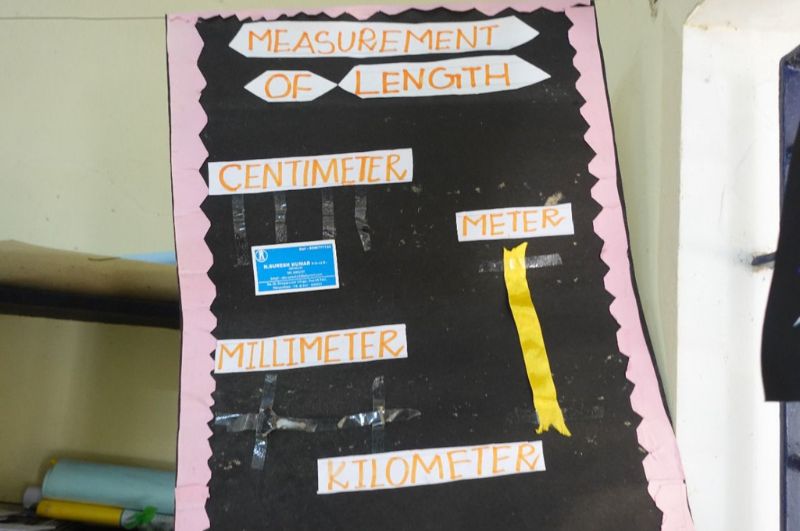 MEASUREMENT
OF LENGTH
CENTIMETER
METER
R.SURESH KUMAR
MILLIMETER
KILOMETER